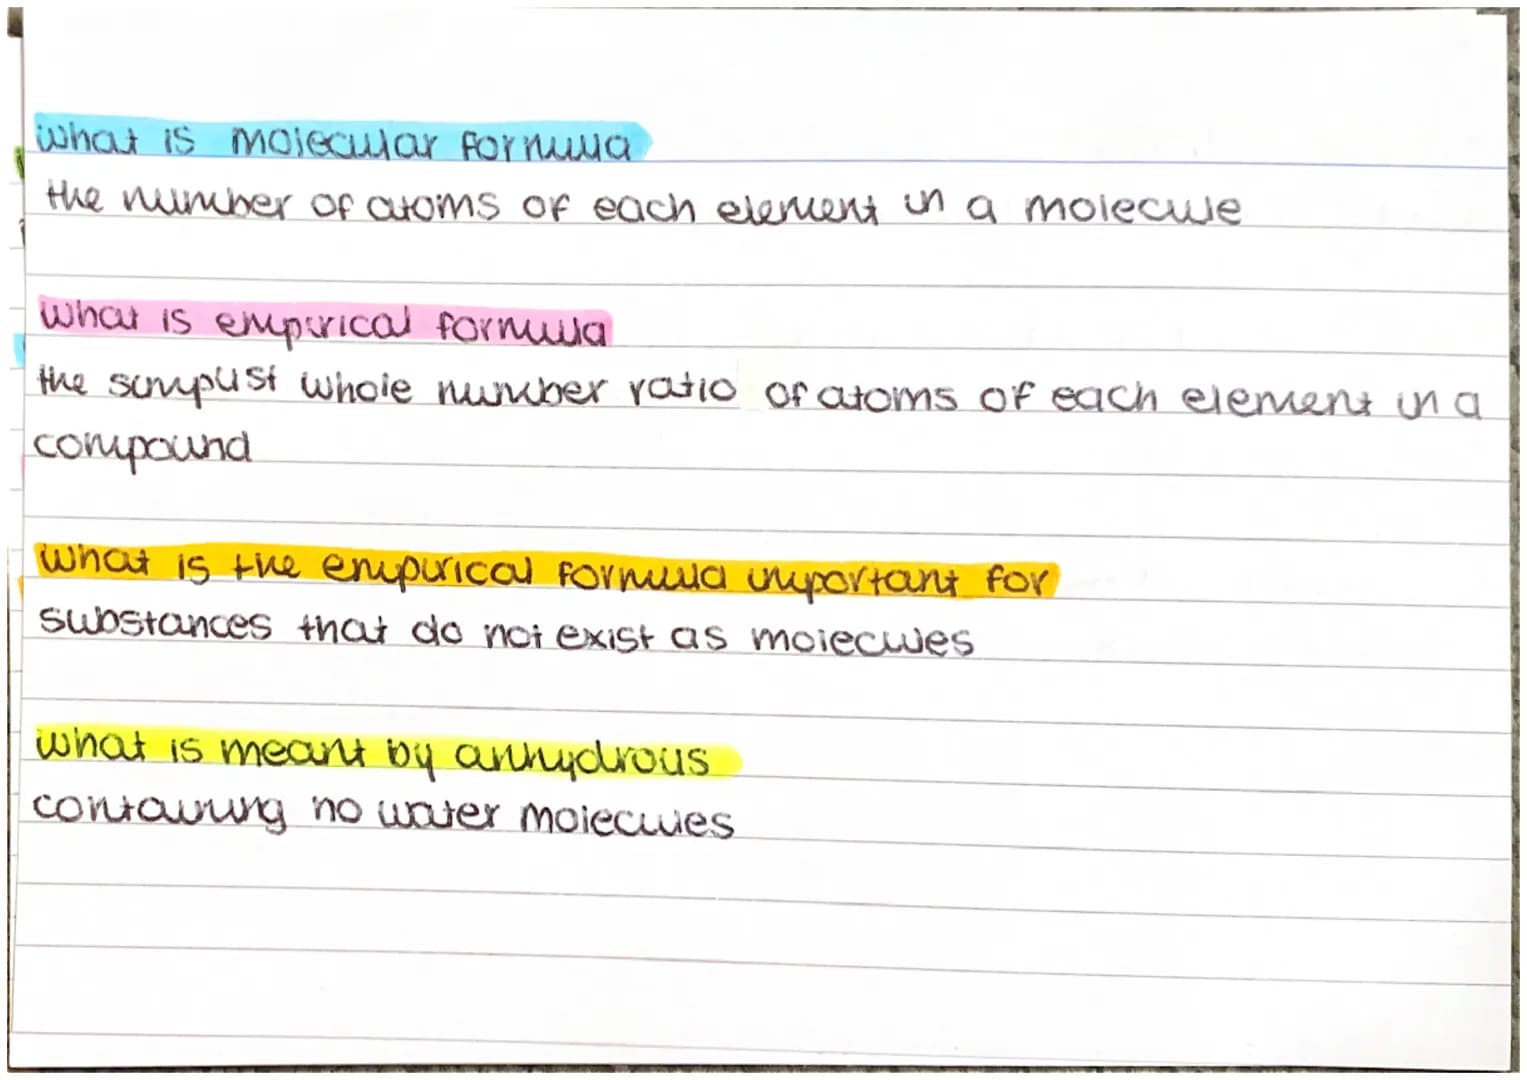 what is molecular formula
the number of atoms of each element in a molecule
what is empirical formula
the simplist whole number ratio of atoms of each element in a
compound
what is the empirical formula important for
substances that do not exist as molecules
what is meant by anhydrous
containing no water molecules